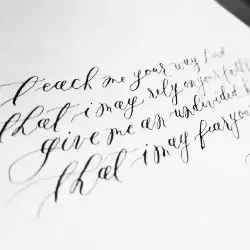 teach me your way Lord
that i may rely on your
give me an undivided
that i may fear your